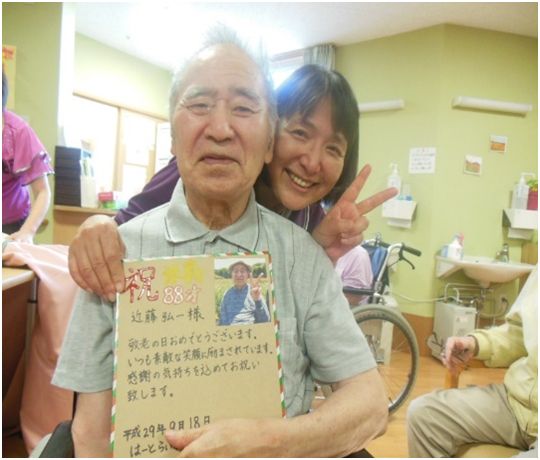 祝 米寿
88才
近藤 弘一 様
敬老の日おめでとうございます。
いつも素敵な笑顔に励まされています。
感謝の気持ちを込めてお祝い
致します。
平成29年9月18日
はーとらい